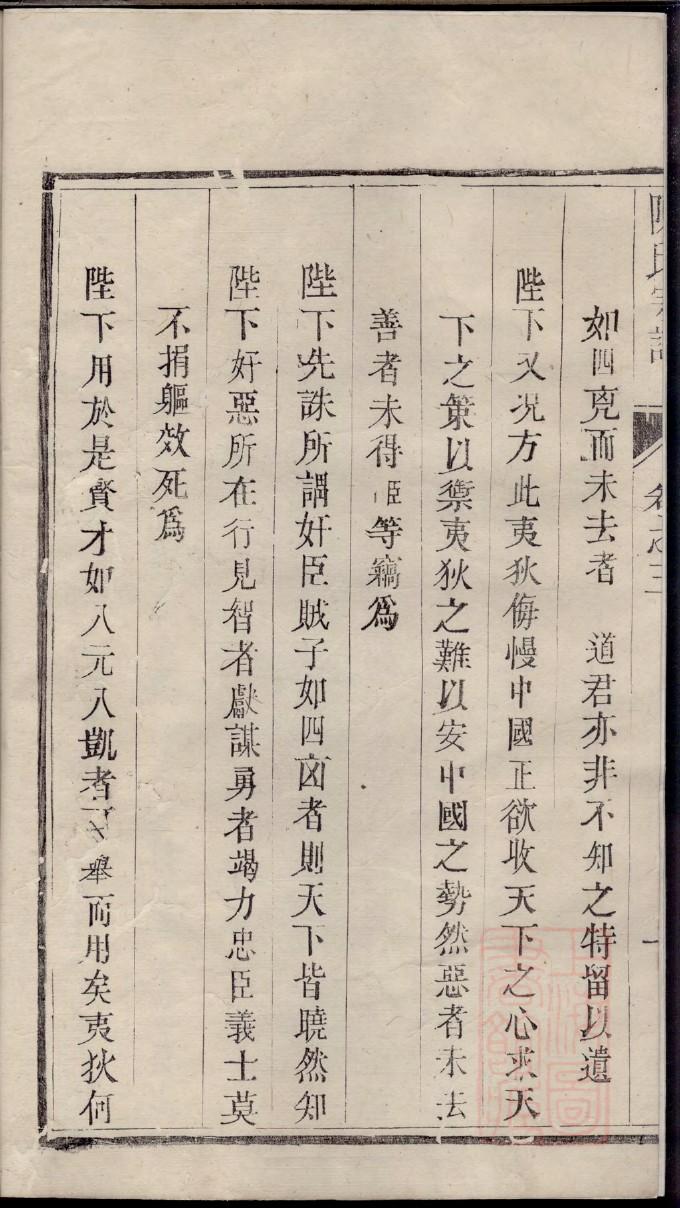 陳氏宗譜 卷之三 一
如四兇而未去者 道君亦非不知之特留以遺
陛下又况方此夷狄侮慢中國正欲收天下之心求天
下之策以禦夷狄之難以安中國之勢然惡者未去
善者未得臣等竊爲
陛下先誅所謂奸臣賊子如四凶者則天下皆曉然知
陛下好惡所在行見智者獻謀勇者竭力忠臣義士莫
不捐軀效死爲
陛下用於是賢才如八元八凱者 舉而用矣夷狄何